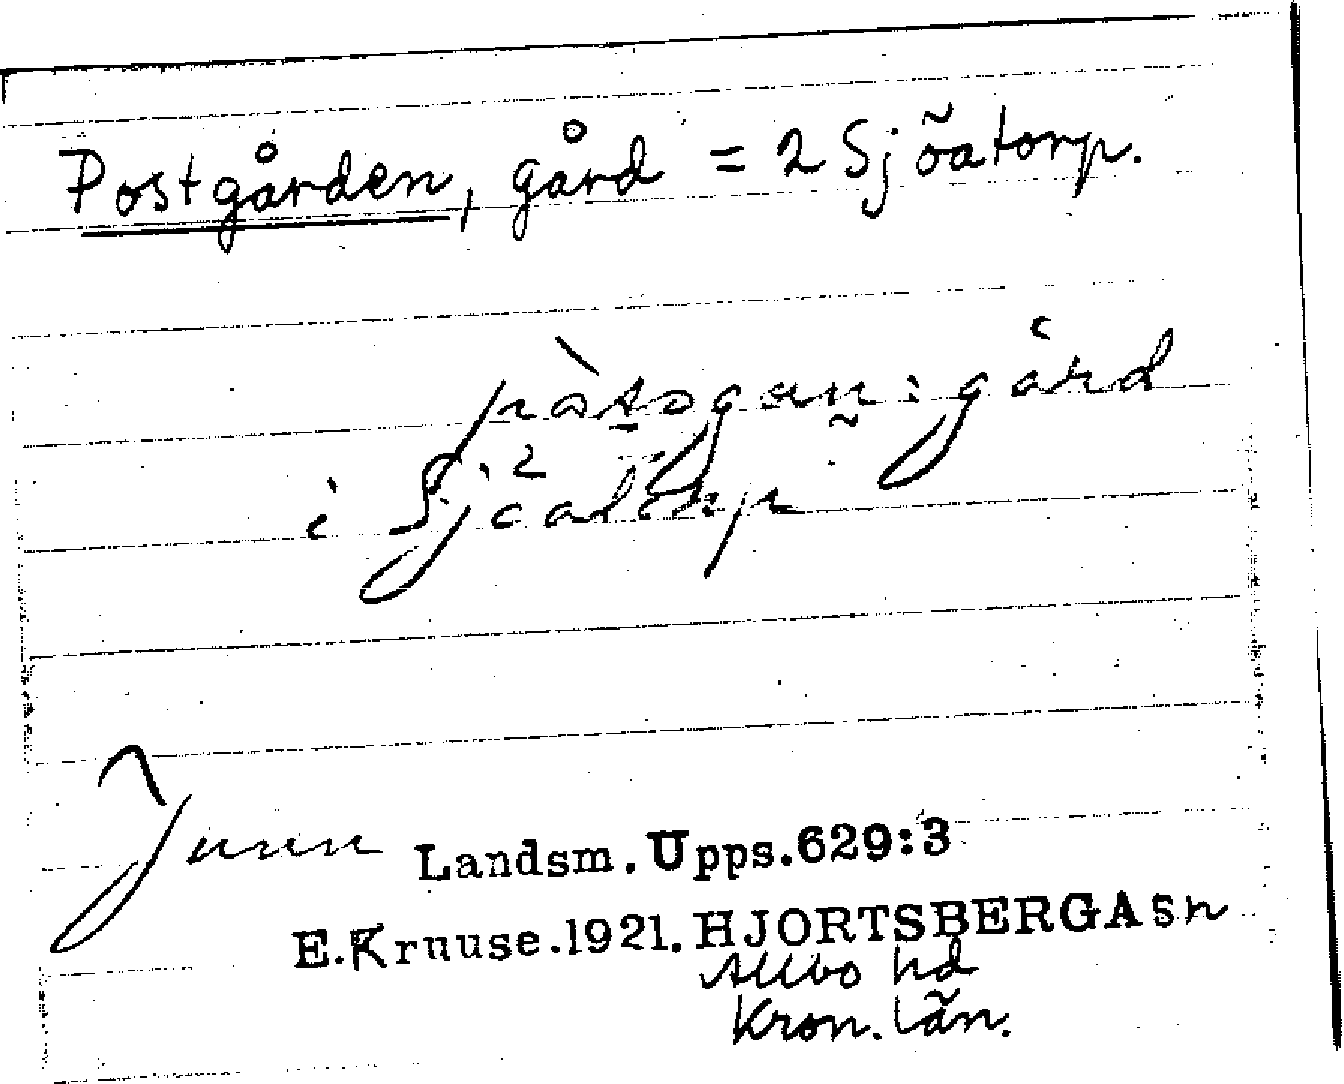 Postgården, gård = 2 Sjöatorp.
gård
i Sjöatorp 2
Landsm. Upps. 629:3
E. Kruuse. 1921. HJORTSBERGA sn
Allbo hd
Kron. län.